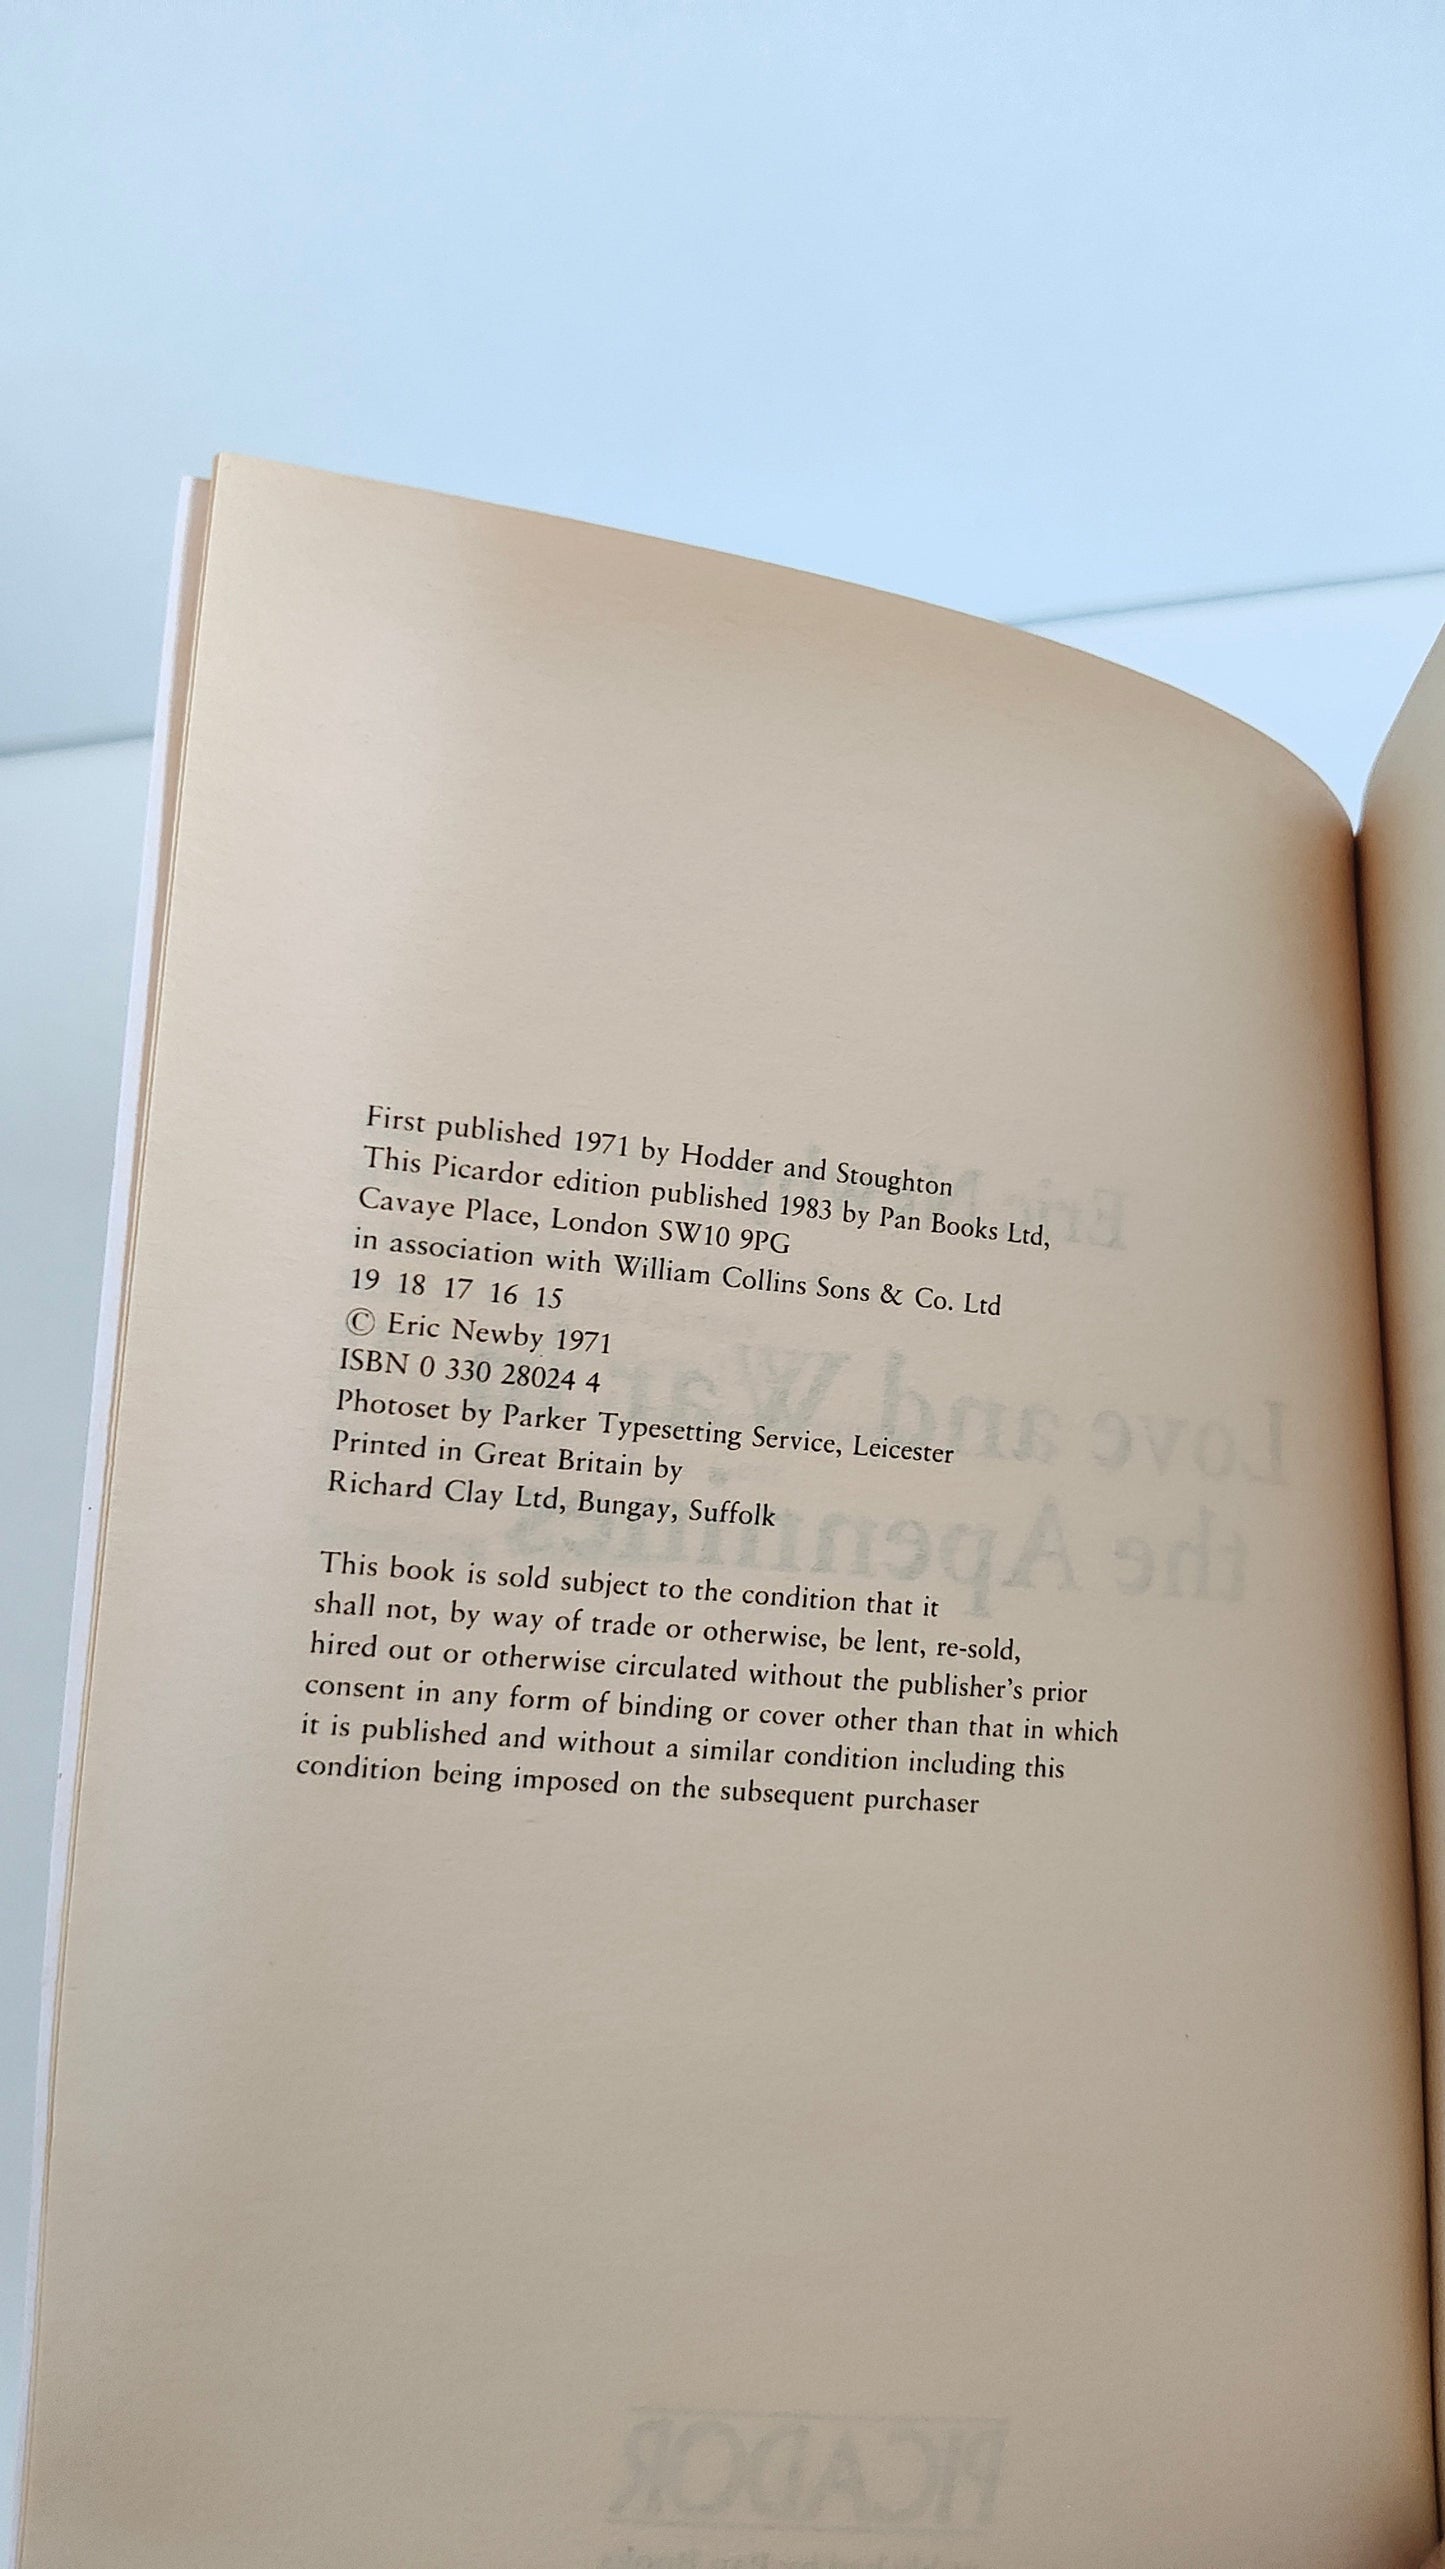 First published 1971 by Hodder and Stoughton
This Picardor edition published 1983 by Pan Books Ltd,
Cavaye Place, London SW10 9PG
in association with William Collins Sons & Co. Ltd
19 18 17 16 15
© Eric Newby 1971
ISBN 0 330 28024 4
Photoset by Parker Typesetting Service, Leicester
Printed in Great Britain by
Richard Clay Ltd, Bungay, Suffolk
This book is sold subject to the condition that it
shall not, by way of trade or otherwise, be lent, re-sold,
hired out or otherwise circulated without the publisher's prior
consent in any form of binding or cover other than that in which
it is published and without a similar condition including this
condition being imposed on the subsequent purchaser
PICADOR